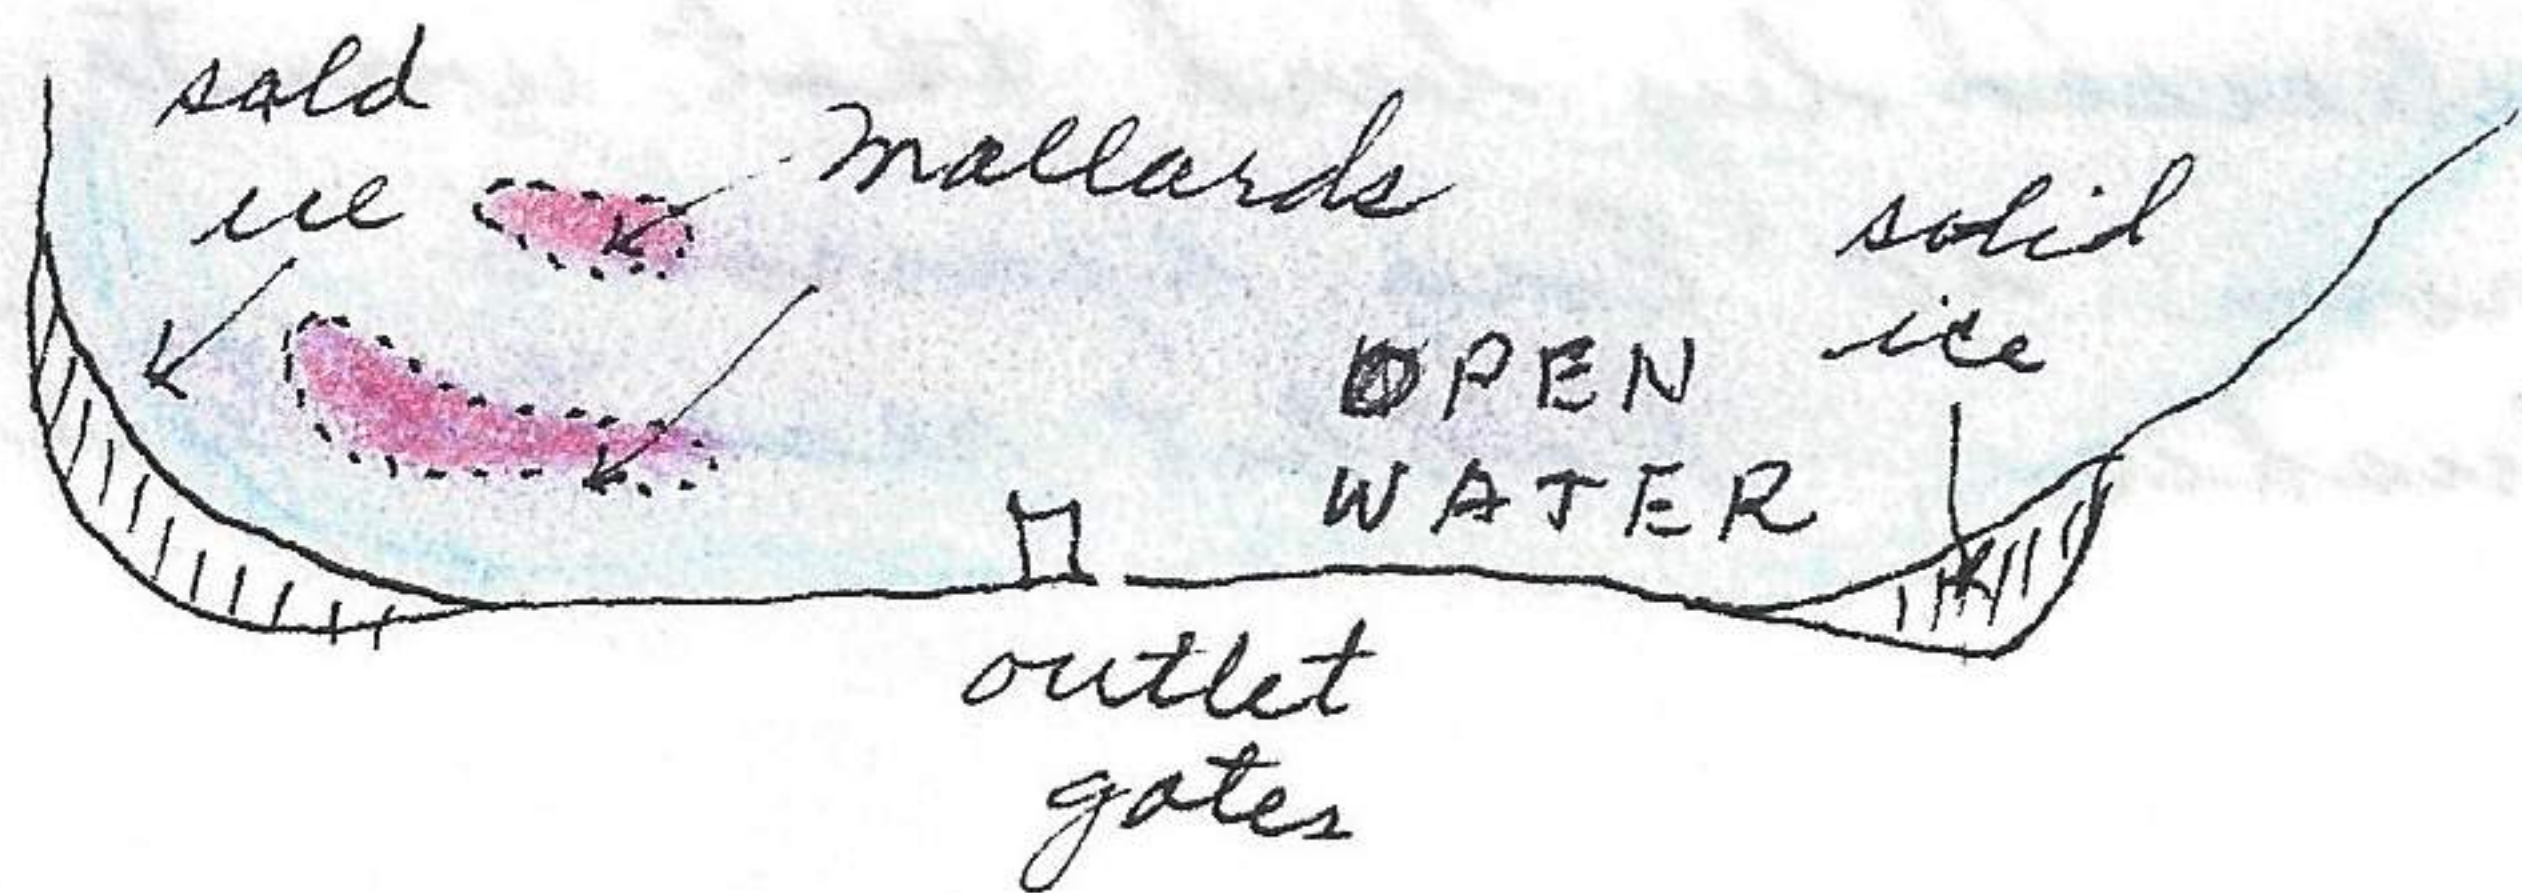 sold
ice
mallards
solid
ice
OPEN
WATER
outlet
gates